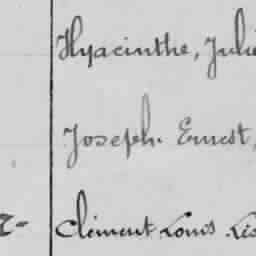 Hyacinthe, Juli
Joseph. Ernest,
Clément Louis